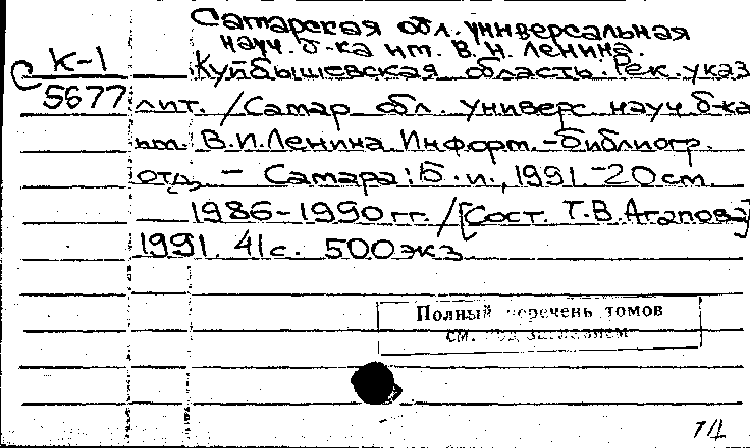 Самарская обл. универсальная
науч. б-ка им. В. И. Ленина.
С К-1
5677
Куйбышевская область. Рек. указ
лит. / Самар обл. универс науч б-ка
им. В.И.Ленина. Информ.-библиогр.
отд, - Самара: Б.и., 1991. - 20 см.
1986-1990 гг. / [Сост. Т.В.Агапова]
1991. 41 с. 500 экз
Полный перечень томов
см. под заглавием